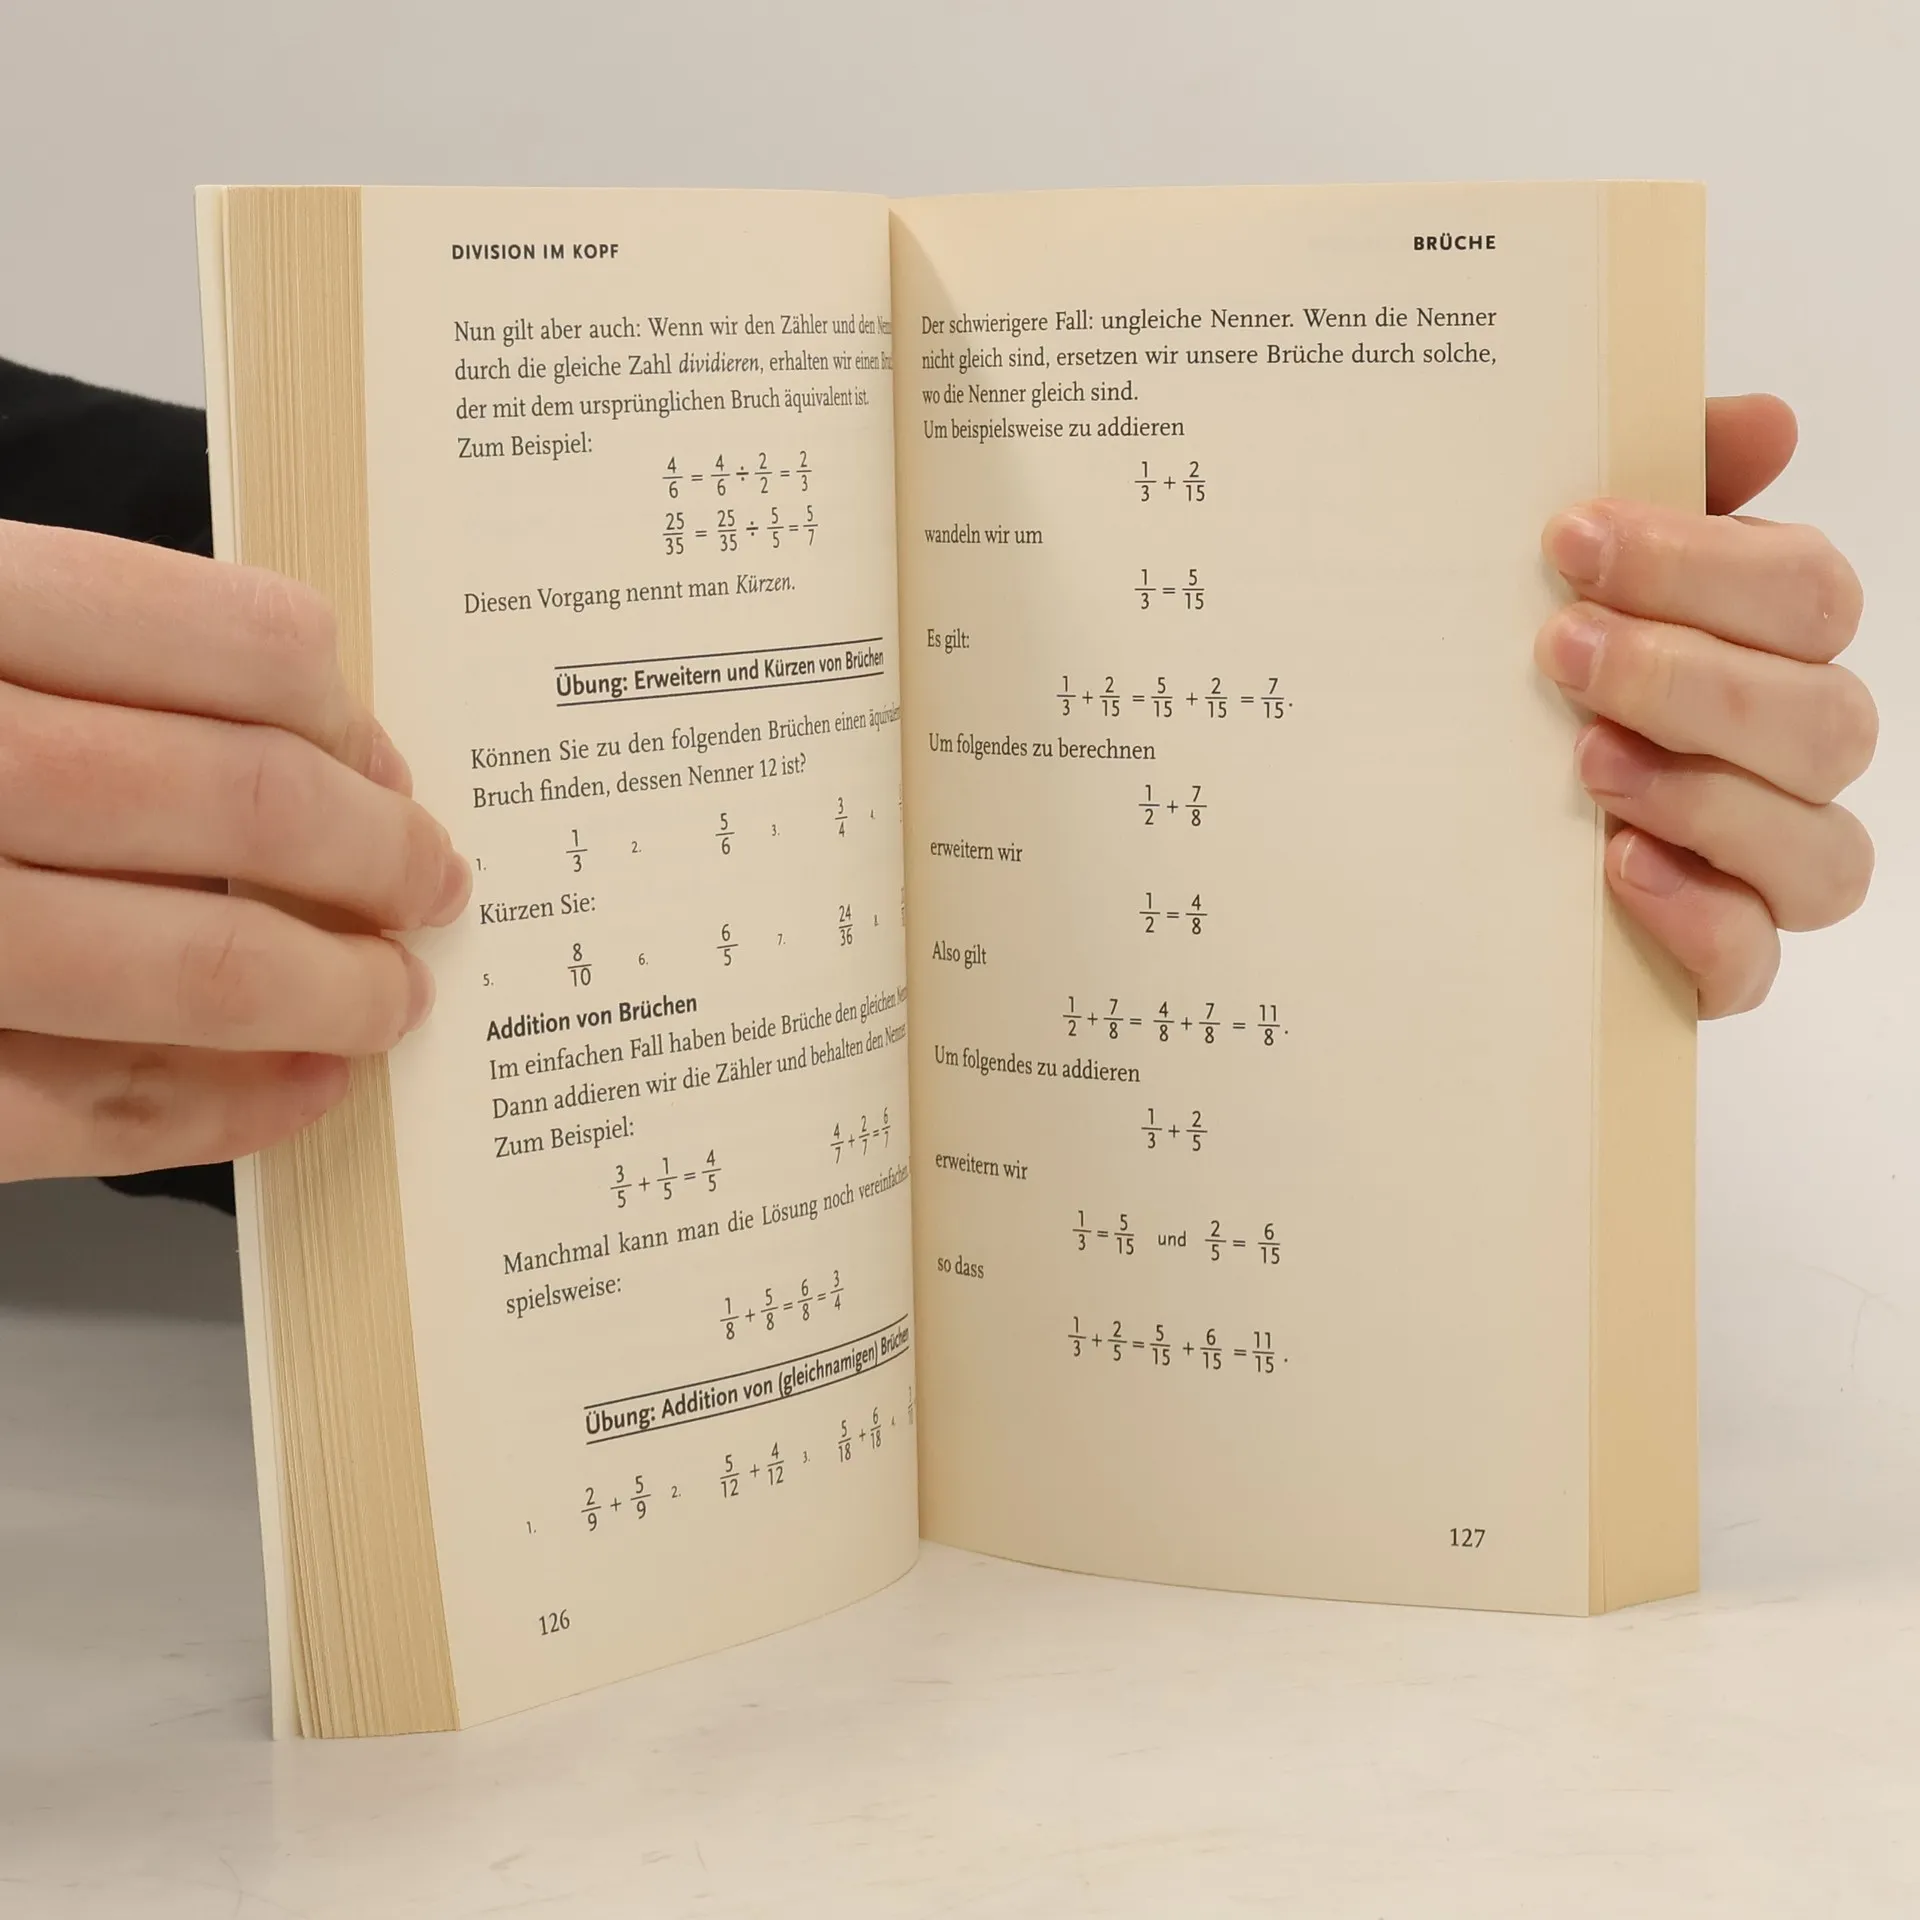 DIVISION IM KOPF
Nun gilt aber auch: Wenn wir den Zähler und den
durch die gleiche Zahl dividieren, erhalten wir einen
der mit dem ursprünglichen Bruch äquivalent ist.
Zum Beispiel:
4/6 = 4/6 ÷ 2/2 = 2/3
25/35 = 25/35 ÷ 5/5 = 5/7
Diesen Vorgang nennt man Kürzen.
Übung: Erweitern und Kürzen von Brüchen
Können Sie zu den folgenden Brüchen einen
Bruch finden, dessen Nenner 12 ist?
1. 1/3 2. 5/6 3. 3/4 4.
Kürzen Sie:
5. 8/10 6. 6/5 7. 24/36 8.
Addition von Brüchen
Im einfachen Fall haben beide Brüche den gleichen
Dann addieren wir die Zähler und behalten den Nenner
Zum Beispiel:
3/5 + 1/5 = 4/5 4/7 + 2/7 = 6/7
Manchmal kann man die Lösung noch vereinfachen,
spielsweise:
1/8 + 5/8 = 6/8 = 3/4
Übung: Addition von (gleichnamigen) Brüchen
1. 2/9 + 5/9 2. 5/12 + 4/12 3. 5/18 + 6/18 4.
126
BRÜCHE
Der schwierigere Fall: ungleiche Nenner. Wenn die Nenner
nicht gleich sind, ersetzen wir unsere Brüche durch solche,
wo die Nenner gleich sind.
Um beispielsweise zu addieren
1/3 + 2/15
wandeln wir um
1/3 = 5/15
Es gilt:
1/3 + 2/15 = 5/15 + 2/15 = 7/15.
Um folgendes zu berechnen
1/2 + 7/8
erweitern wir
1/2 = 4/8
Also gilt
1/2 + 7/8 = 4/8 + 7/8 = 11/8.
Um folgendes zu addieren
1/3 + 2/5
erweitern wir
1/3 = 5/15 und 2/5 = 6/15
so dass
1/3 + 2/5 = 5/15 + 6/15 = 11/15.
127